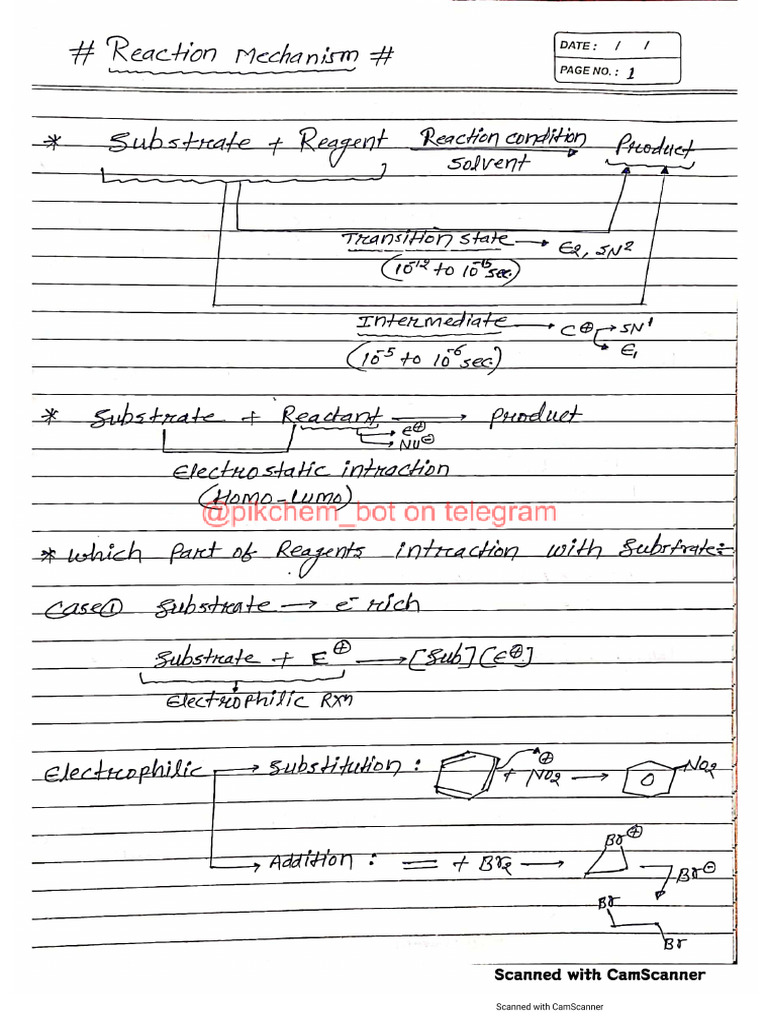 # Reaction Mechanism #
DATE : / /
PAGE NO. : 1
* Substrate + Reagent Reaction condition Product
Solvent
Transition state → E2, SN2
(10-12 to 10-15 sec.)
Intermediate → C⊕ → SN1
(10-5 to 10-6 sec.) → E1
* Substrate + Reactant → Product
→ E⊕
→ Nu⊖
Electrostatic intraction
(Homo-Lumo)
@pikchem_bot on telegram
* which part of Reagents intraction with Substrate:-
Case① Substrate → e- rich
Substrate + E⊕ → [Sub][E⊕]
Electrophilic Rxn
Electrophilic → Substitution : + NO2⊕ → NO2
→ Addition : = + Br2 → Br⊕
Br⊖
Br
Br
Scanned with CamScanner
Scanned with CamScanner